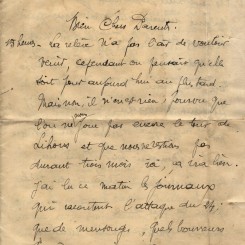 Mon Chers Parents.
15 heures - La relève n'a pas l'air de vouloir
venir, cependant on pensait qu'elle
soit pour aujourd'hui au plus tard.
Mais non, il n'en est rien ! J'ouvre que
l'on ne joue pas encore le tour de
Lihons et que nous restions
durant trois mois
J'ai lu ce matin les journaux
qui racontent l'attaque du 24
que de mensonges, quels bourreurs